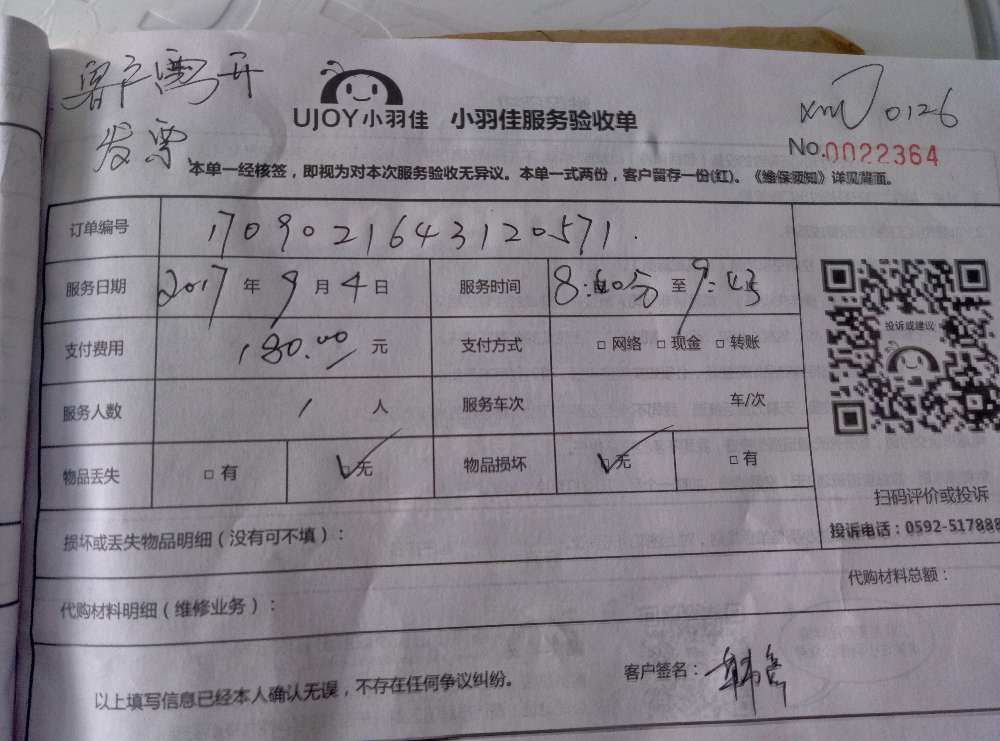 客户需开
发票
UJOY小羽佳 小羽佳服务验收单
xm 0126
No.0022364
本单一经核签，即视为对本次服务验收无异议。本单一式两份，客户留存一份(红)。《维保须知》详见背面。
订单编号 1709021643120571.
服务日期 2017年9月4日 服务时间 8:40分至9:43
支付费用 180.00元 支付方式 □网络 □现金 □转账
投诉或建议
服务人数 1人 服务车次 车/次
物品丢失 □有 ☑无 物品损坏 ☑无 □有
扫码评价或投诉
投诉电话：0592-517888
损坏或丢失物品明细（没有可不填）：
代购材料明细（维修业务）： 代购材料总额：
以上填写信息已经本人确认无误，不存在任何争议纠纷。 客户签名：